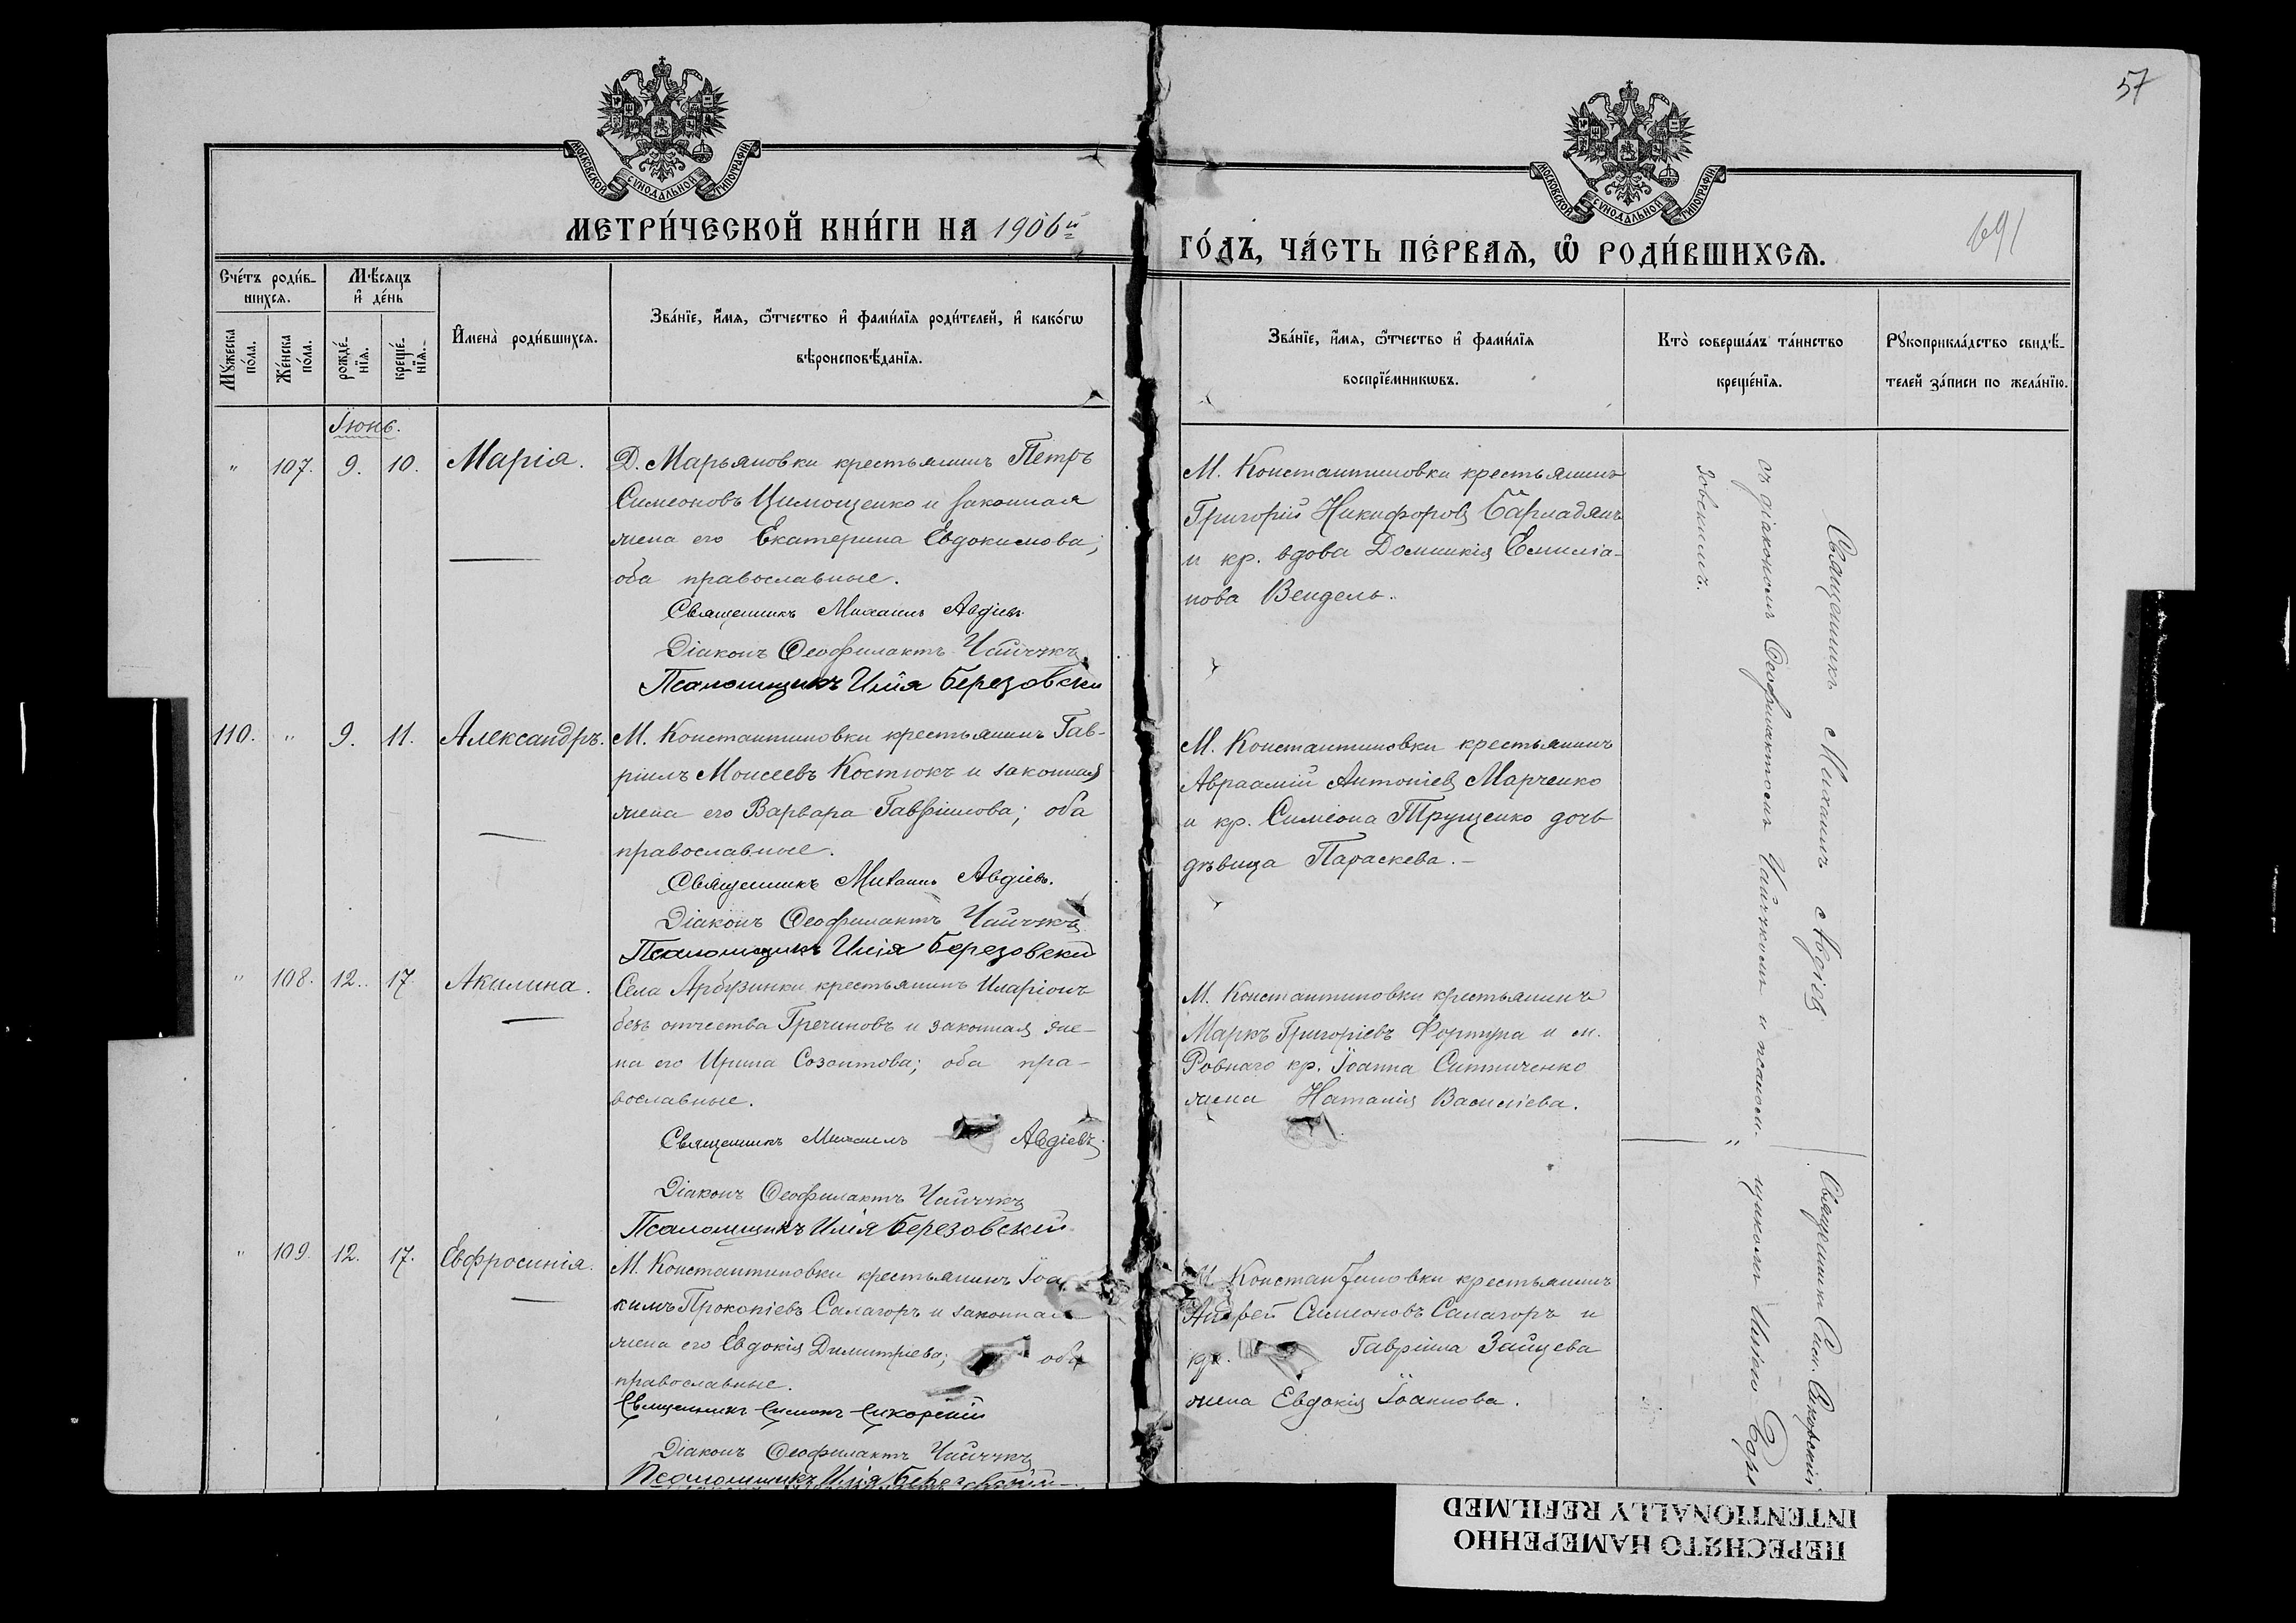 57
МОСКОВСКОЙ СѴНОДАЛЬНОЙ ТИПОГРАФІИ
МОСКОВСКОЙ СѴНОДАЛЬНОЙ ТИПОГРАФІИ
МЕТРИ́ЧЕСКОЙ КНИ́ГИ НА 1906й
ГО́ДЪ, ЧА́СТЬ ПЕ́РВАѦ, Ѿ РОДИ́ВШИХСѦ.
691
Сче́тъ роди́в-
шихся.
Мꙋ́жеска
по́ла.
Же́нска
по́ла.
Мѣ́сяцъ
и҆ де́нь
рожде́-
нїя.
креще́-
нїя.
И҆мена̀ роди́вшихся.
Зва́нїе, и҆́мя, ѻ҆́тчество и҆ фами́лїя роди́телей, и҆ како́гѡ
вѣроисповѣ́данїя.
Зва́нїе, и҆́мя, ѻ҆́тчество и҆ фами́лїя
воспрїе́мникѡвъ.
Кто̀ соверша́лъ та́инство
креще́нїя.
Рꙋкоприкла́дство свидѣ́-
телей за́писи по жела́нїю.
Іюнь.
" 107. 9. 10. Марія.
Д. Марьяновки крестьянинъ Петръ
Симеоновъ Цимощенко и законная
жена его Екатерина Евдокимова;
оба православные.
Священникъ Михаилъ Авдіевъ
Діаконъ Ѳеофилактъ Чайчукъ
Псаломщикъ Илія Березовскій
М. Константиновки крестьянинъ
Григорій Никифоровъ Барладянъ
и кр. вдова Домникія Емиліа-
нова Вендель.
110. " 9. 11. Александръ.
М. Константиновки крестьянинъ Гав-
ріилъ Моисеевъ Костюкъ и законная
жена его Варвара Гавріилова; оба
православные.
Священникъ Михаилъ Авдіевъ.
Діаконъ Ѳеофилактъ Чайчукъ
Псаломщикъ Илія Березовскій
М. Константиновки крестьянинъ
Авраамій Антоніевъ Марченко
и кр. Симеона Трущенко дочь
дѣвица Параскева. -
" 108. 12. 17. Акилина.
Села Арбузинки крестьянинъ Иларіонъ
безъ отчества Гречиновъ и законная же-
на его Ирина Созонтова; оба пра-
вославные.
Священникъ Михаилъ Авдіевъ
Діаконъ Ѳеофилактъ Чайчукъ
Псаломщикъ Илія Березовскій
М. Константиновки крестьянинъ
Маркъ Григоріевъ Фортуна и м.
Ровнаго кр. Іоанна Ситниченко
жена Наталія Василіева.
" 109. 12. 17. Евфросинія.
М. Константиновки крестьянинъ Іоа
кимъ Прокопіевъ Салагоръ и законная
жена его Евдокія Димитріева; оба
православные.
Священникъ Симонъ Сикорскій
Діаконъ Ѳеофилактъ Чайчукъ
Псаломщикъ Илія Березовскій
М. Константиновки крестьянинъ
Андрей Симеоновъ Салагоръ и
кр. Гавріила Зайцева
жена Евдокія Іоаннова.
Священникъ Михаилъ Авдіевъ
съ діакономъ Ѳеофилактомъ Чайчукомъ и псалом-
щикомъ Иліею Бере
зовскимъ.
Священникъ Сим. Сикорскій
"
ПЕРЕСНЯТО НАМЕРЕННО
INTENTIONALLY REFILMED